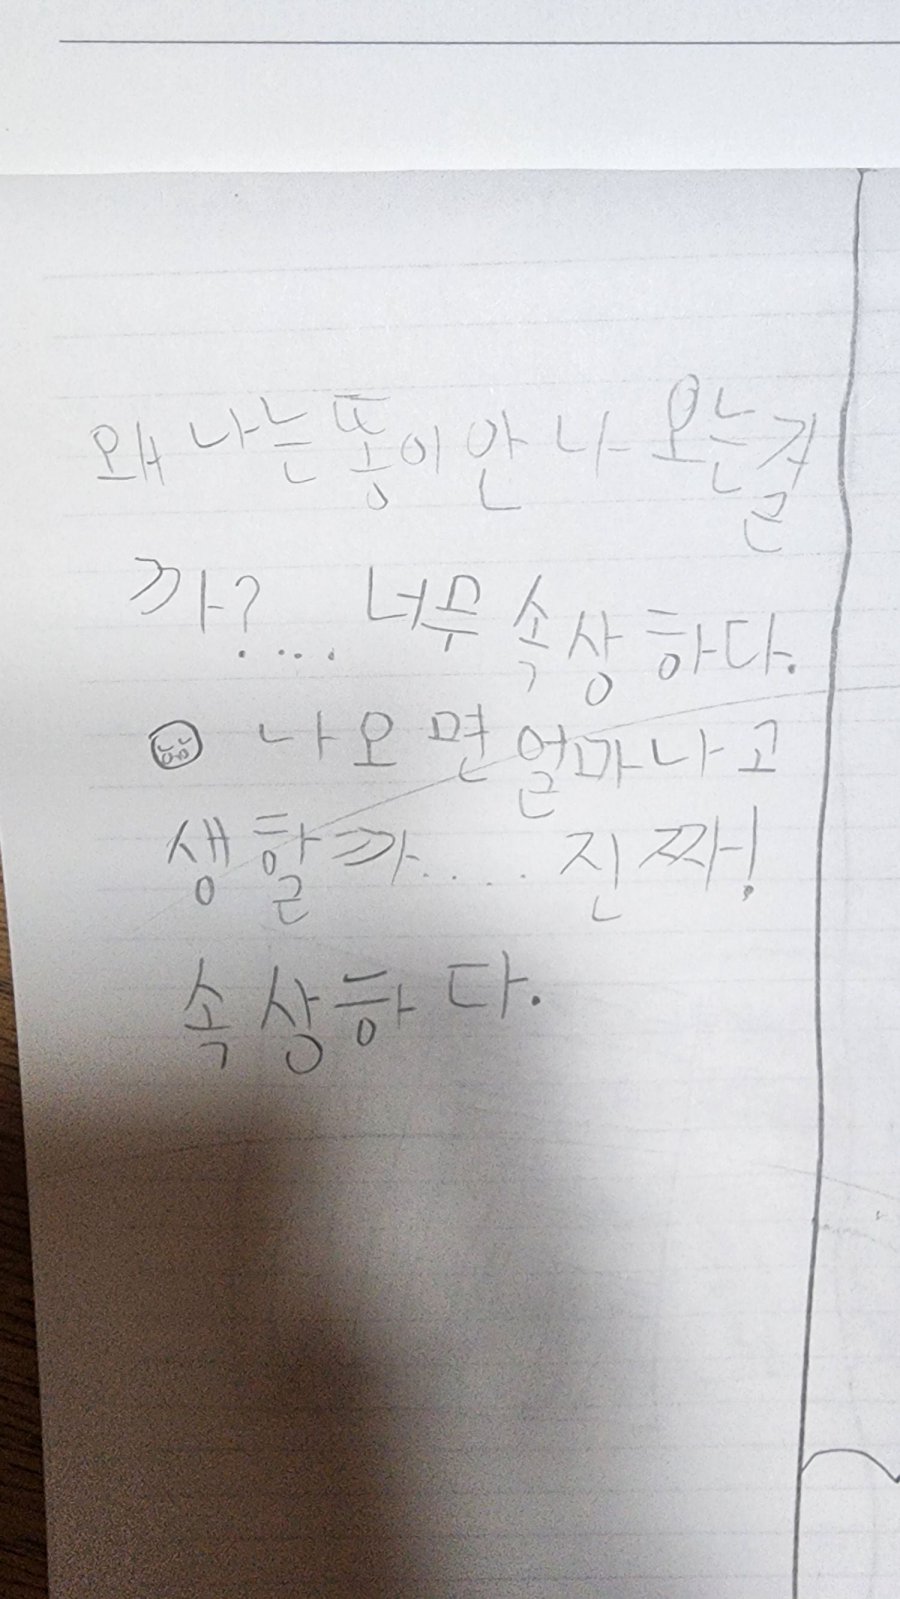 왜 나는 똥이 안 나 오는걸
까?... 너무 속상하다.
나오면 얼마나 고
생할까.... 진짜!
속상하다.